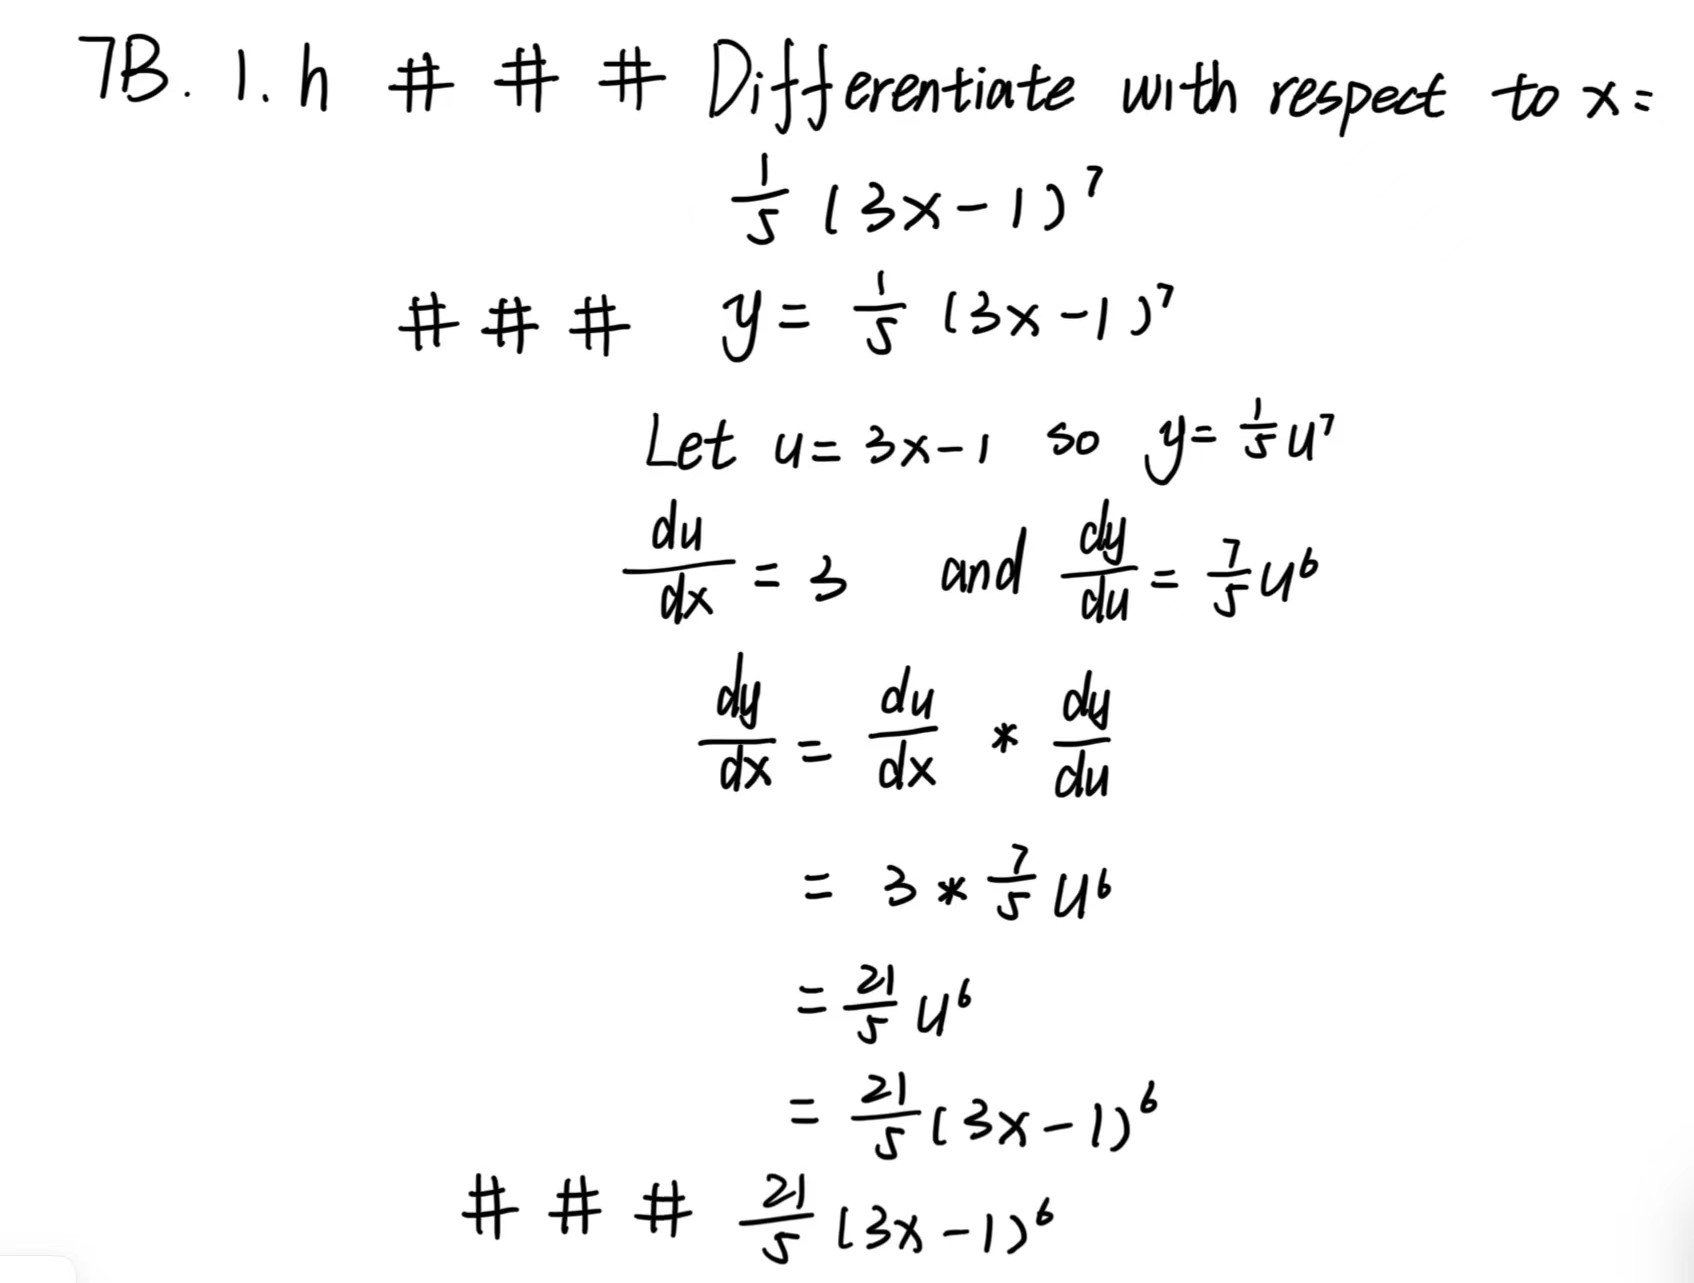 7B. 1. h # # # Differentiate with respect to x=
1/5 (3x-1)^7
# # # y = 1/5 (3x-1)^7
Let u = 3x-1 so y = 1/5 u^7
du/dx = 3 and dy/du = 7/5 u^6
dy/dx = du/dx * dy/du
= 3 * 7/5 u^6
= 21/5 u^6
= 21/5 (3x-1)^6
# # # 21/5 (3x-1)^6